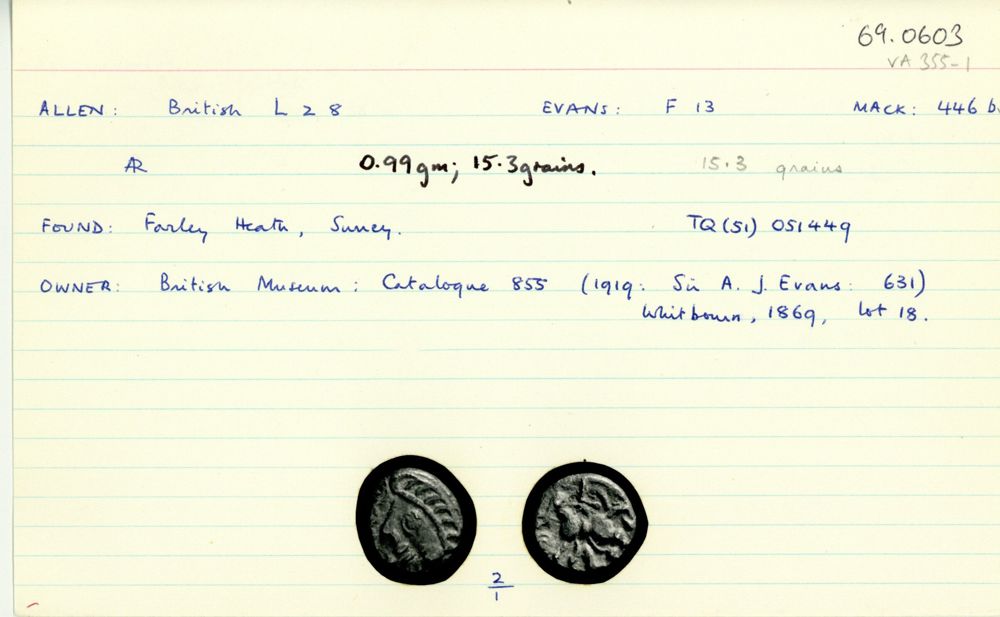 69.0603
VA 355-1
ALLEN: British L 28 EVANS: F 13 MACK: 446 b.
AR 0.99gm; 15.3grains. 15.3 grains
FOUND: Farley Heath, Surrey. TQ(51) 051449
OWNER: British Museum: Catalogue 855 (1919: Sir A. J. Evans: 631)
Whitbourn, 1869, lot 18.
2
1